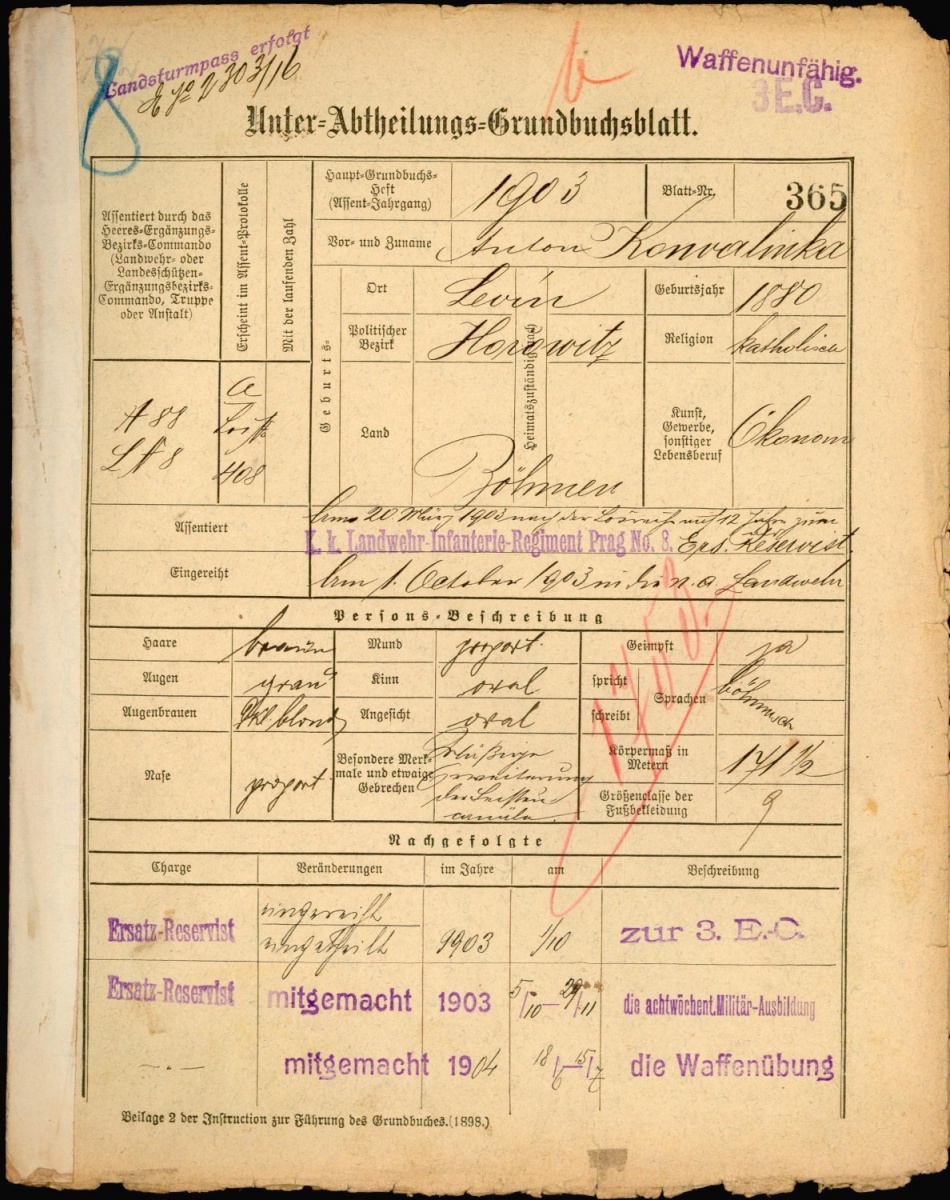 Landsturmpass erfolgt
E No 2303/16
Waffenunfähig.
3 E.C.
8
Unter=Abtheilungs=Grundbuchsblatt.
Assentiert durch das
Heeres-Ergänzungs-
Bezirks-Commando
(Landwehr- oder
Landesschützen-
Ergänzungsbezirks-
Commando, Truppe
oder Anstalt)
Erscheint im Assent-Protokolle
Mit der laufenden Zahl
Haupt-Grundbuchs-
Heft
(Assent-Jahrgang)
1903
Blatt-Nr.
365
Vor- und Zuname
Anton Konvalinka
Geburts-
Ort
Levín
Geburtsjahr
1880
Politischer
Bezirk
Horowitz
Heimatszuständigkeit
Religion
katholisch
Land
Böhmen
Kunst,
Gewerbe,
sonstiger
Lebensberuf
Ökonom
a
408
Assentiert
Am 20 März 1903 nach der Losreihe auf 12 Jahre zum
k. k. Landwehr-Infanterie-Regiment Prag No. 8. Ers. Reservist.
Eingereiht
Am 1. October 1903 in die n. a. Landwehr
Persons-Beschreibung
Haare
braun
Mund
proport.
Geimpft
ja
Augen
grau
Kinn
oval
spricht
schreibt
Sprachen
böhmisch
Augenbrauen
dkl blond
Angesicht
oval
Nase
proport.
Besondere Merk-
male und etwaige
Gebrechen
Erweiterung
der Leisten
canäle
Körpermaß in
Metern
171 1/2
Größenclasse der
Fußbekleidung
9
Nachgefolgte
Charge
Veränderungen
im Jahre
am
Beschreibung
Ersatz-Reservist
eingereiht
eingetheilt
1903
1/10
zur 3. E.-C.
Ersatz-Reservist
mitgemacht
1903
5/10 — 29/11
die achtwöchent. Militär-Ausbildung
-„-
mitgemacht
1904
18/6 — 15/7
die Waffenübung
Beilage 2 der Instruction zur Führung des Grundbuches. (1898.)